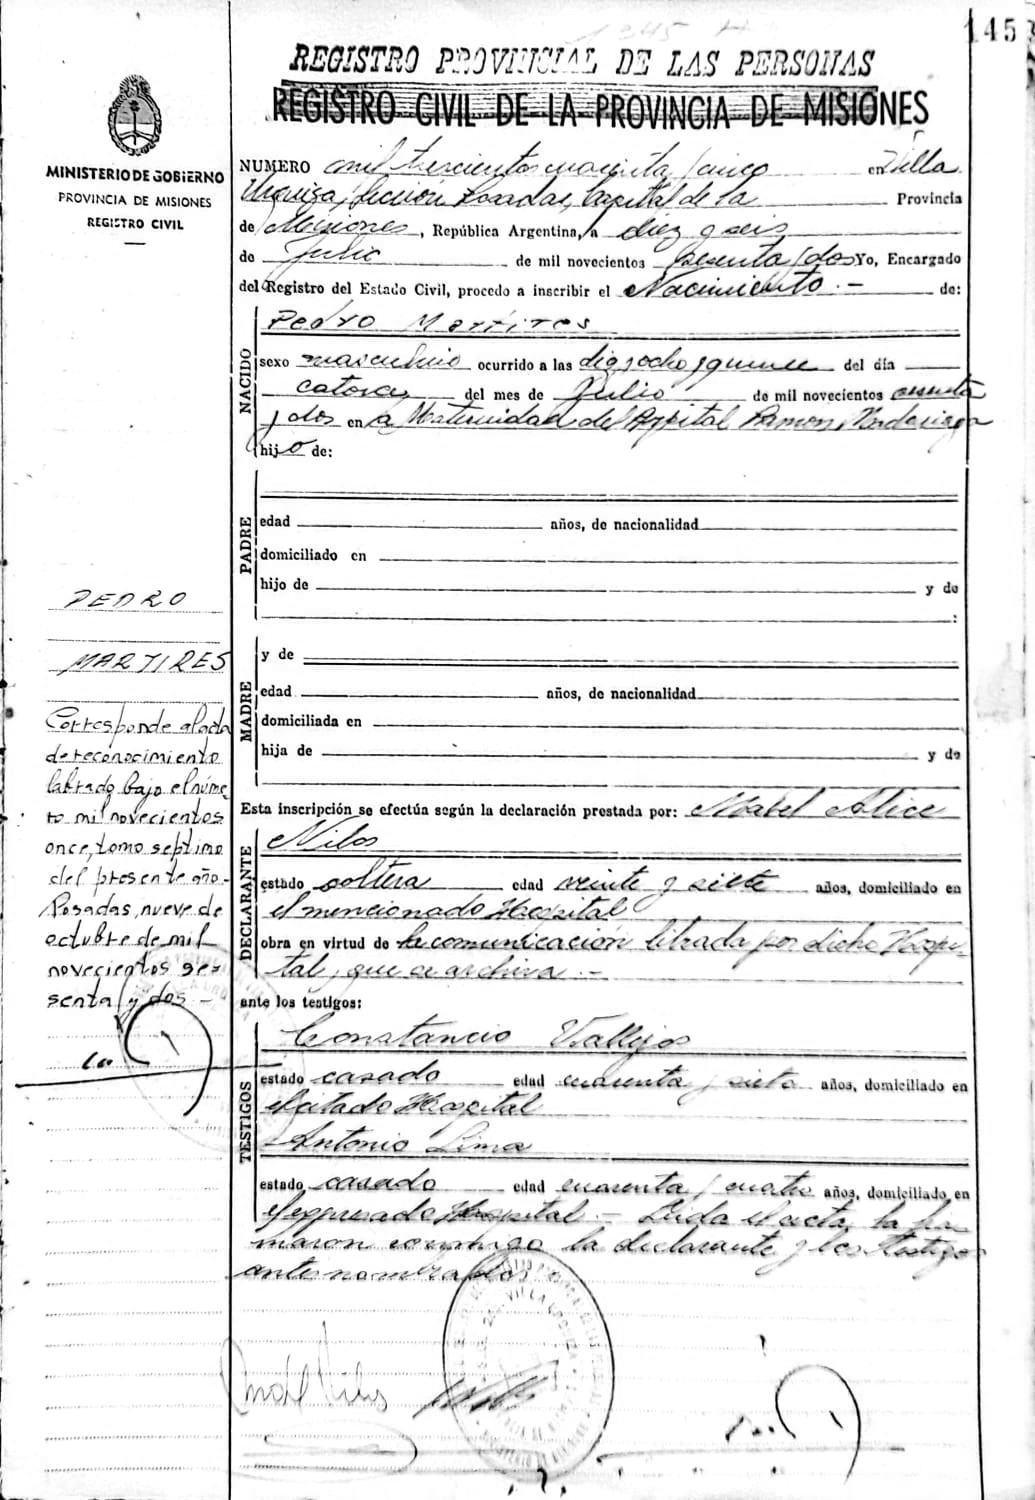 1345 H
145
REGISTRO PROVINCIAL DE LAS PERSONAS
REGISTRO CIVIL DE LA PROVINCIA DE MISIONES
MINISTERIO DE GOBIERNO
PROVINCIA DE MISIONES
REGISTRO CIVIL
NUMERO mil trescientos cuarenta y cinco en Villa
Urquiza, sección Posadas, Capital de la Provincia
de Misiones, República Argentina, a diez y seis
de Julio de mil novecientos sesenta y dos Yo, Encargado
del Registro del Estado Civil, procedo a inscribir el Nacimiento.- de:
NACIDO
Pedro Martires
sexo masculino ocurrido a las diez y ocho y quince del día
catorce del mes de Julio de mil novecientos sesenta
y dos en la Maternidad del Hospital Ramon Madariaga
hijo de:
PADRE
edad años, de nacionalidad
domiciliado en
hijo de y de
:
MADRE
y de
edad años, de nacionalidad
domiciliada en
hija de y de
PEDRO
MARTIRES
Corresponde al acta
de reconocimiento
labrado bajo el núme
ro mil novecientos
once, tomo septimo
del presente año.-
Posadas, nueve de
octubre de mil
novecientos se-
senta y dos -
Esta inscripción se efectúa según la declaración prestada por: Mabel Alice
DECLARANTE
Nilos
estado soltera edad veinte y siete años, domiciliado en
el mencionado Hospital
obra en virtud de la comunicación librada por dicho Hospi-
tal, que se archiva.-
ante los testigos:
TESTIGOS
Constancio Vallejos
estado casado edad cuarenta y siete años, domiciliado en
el citado Hospital
Antonio Lima
estado casado edad cuarenta y cuatro años, domiciliado en
el expresado Hospital.- Leida el acta, la fir
maron conmigo la declarante y los testigos
ante nombrados